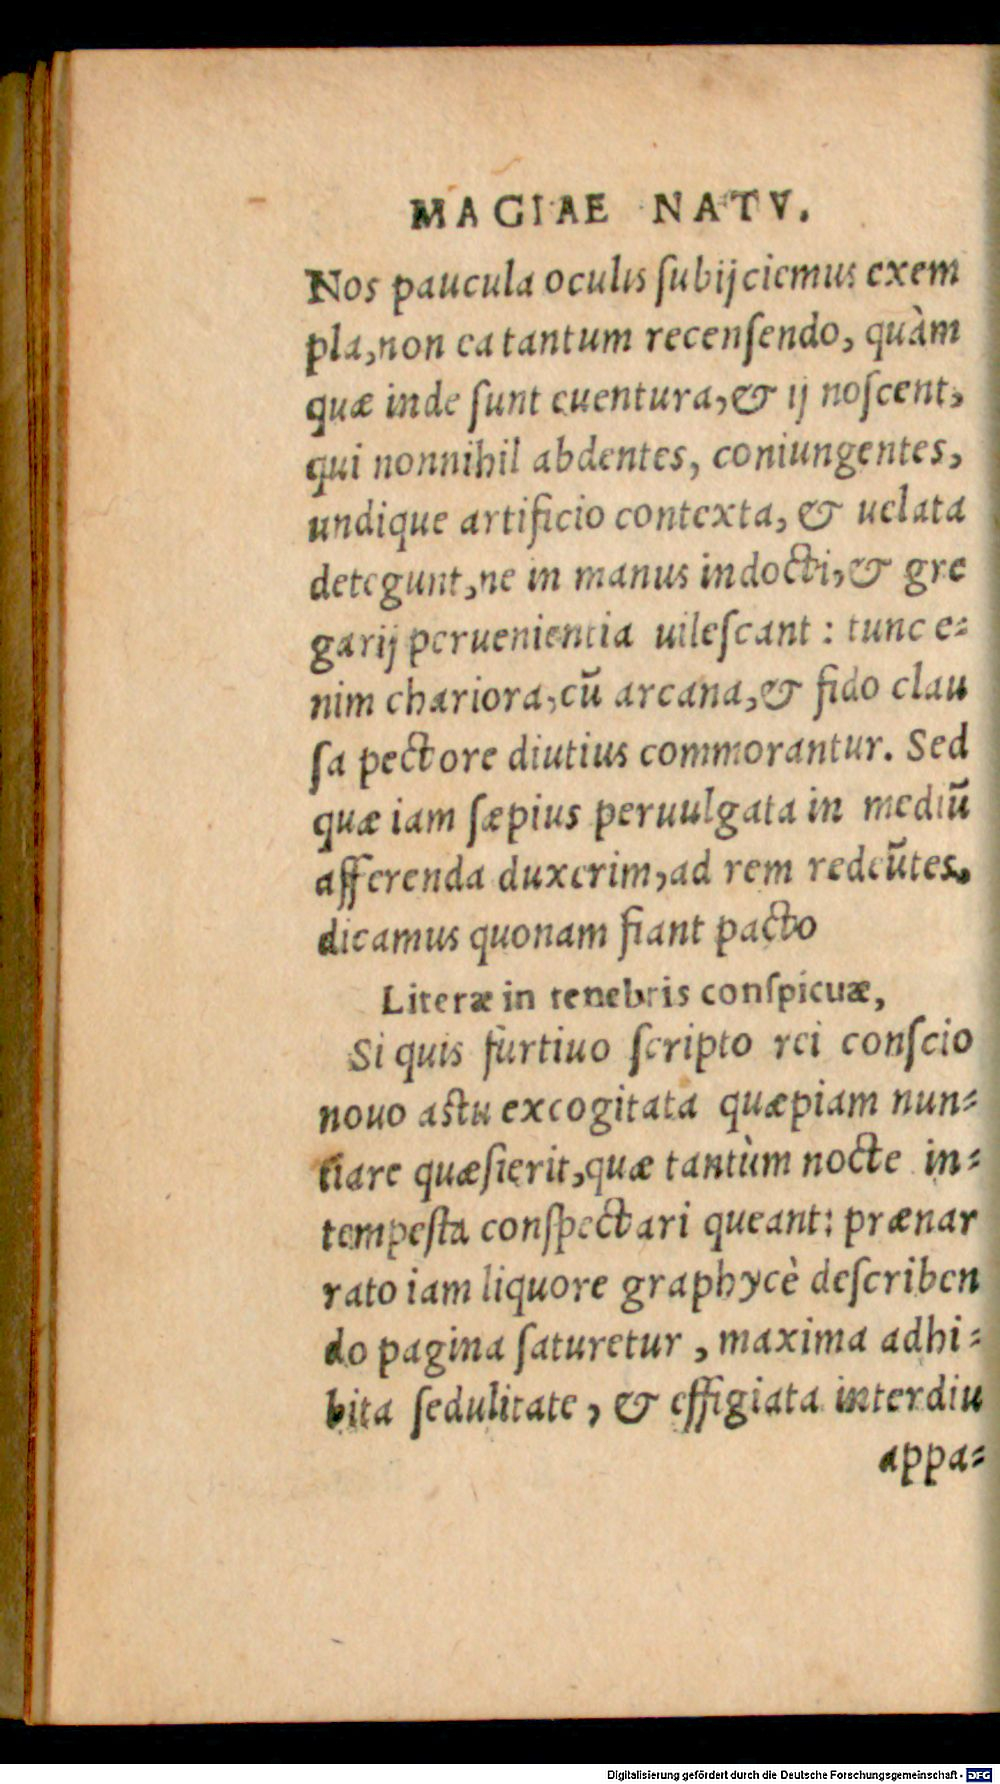 MAGIAE NATV.
Nos paucula oculis ſubijciemus exem
pla, non ea tantum recenſendo, quàm
quæ inde ſunt euentura, & ij noſcent,
qui nonnihil abdentes, coniungentes,
undique artificio contexta, & uelata
detegunt, ne in manus indocti, & gre
garij peruenientia uileſcant: tunc e-
nim chariora, cū arcana, & fido clau
ſa pectore diutius commorantur. Sed
quæ iam ſæpius peruulgata in mediū
afferenda duxerim, ad rem redeūtes,
dicamus quonam fiant pacto
Literæ in tenebris conſpicuæ,
Si quis furtiuo ſcripto rei conſcio
nouo aſtu excogitata quæpiam nun-
tiare quæſierit, quæ tantùm nocte in-
tempeſta conſpectari queant: prænar
rato iam liquore graphycè deſcriben
do pagina ſaturetur, maxima adhi-
bita ſedulitate, & effigiata interdiu
appa-
Digitalisierung gefördert durch die Deutsche Forschungsgemeinschaft - DFG